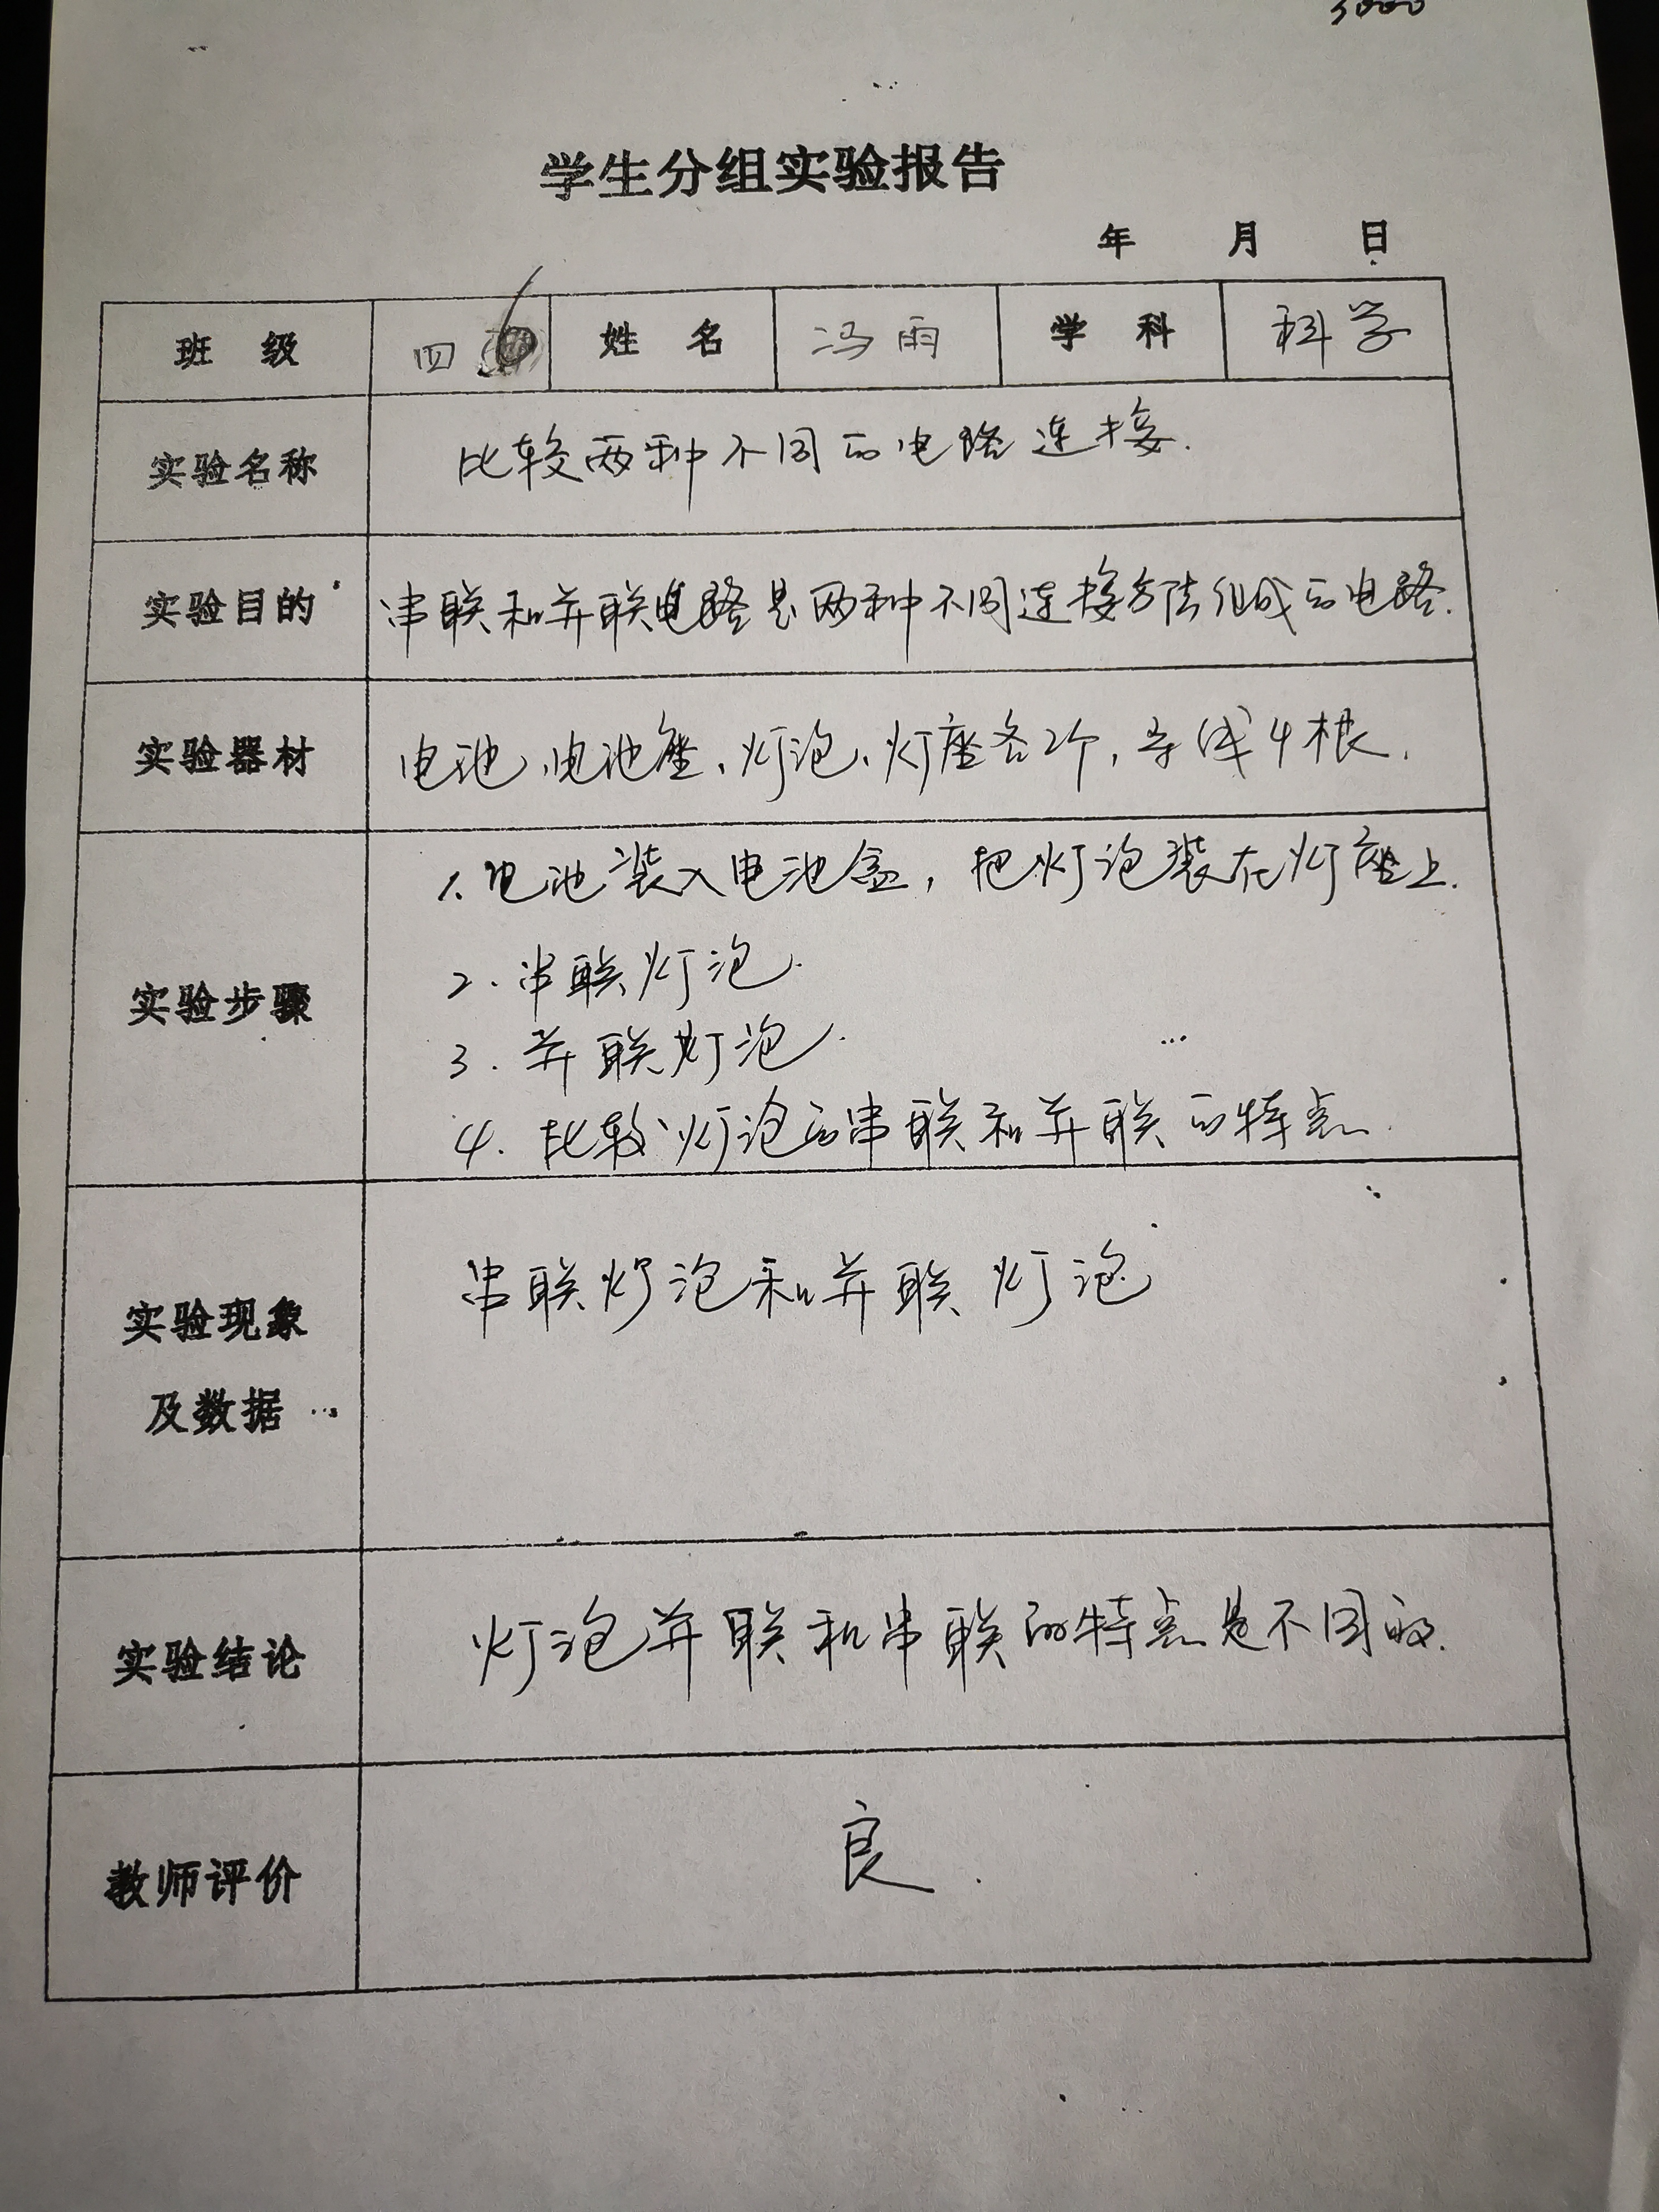 学生分组实验报告
年 月 日
班 级 四 6 姓 名 冯雨 学 科 科学
实验名称 比较两种不同的电路连接.
实验目的 串联和并联电路是两种不同连接方法组成的电路.
实验器材 电池、电池座、灯泡、灯座各2个,导线4根.
1.电池装入电池盒,把灯泡装在灯座上.
2.串联灯泡.
实验步骤
3.并联灯泡.
4.比较灯泡的串联和并联的特点.
串联灯泡和并联灯泡
实验现象
及数据
实验结论 灯泡并联和串联的特点是不同的.
教师评价 良.